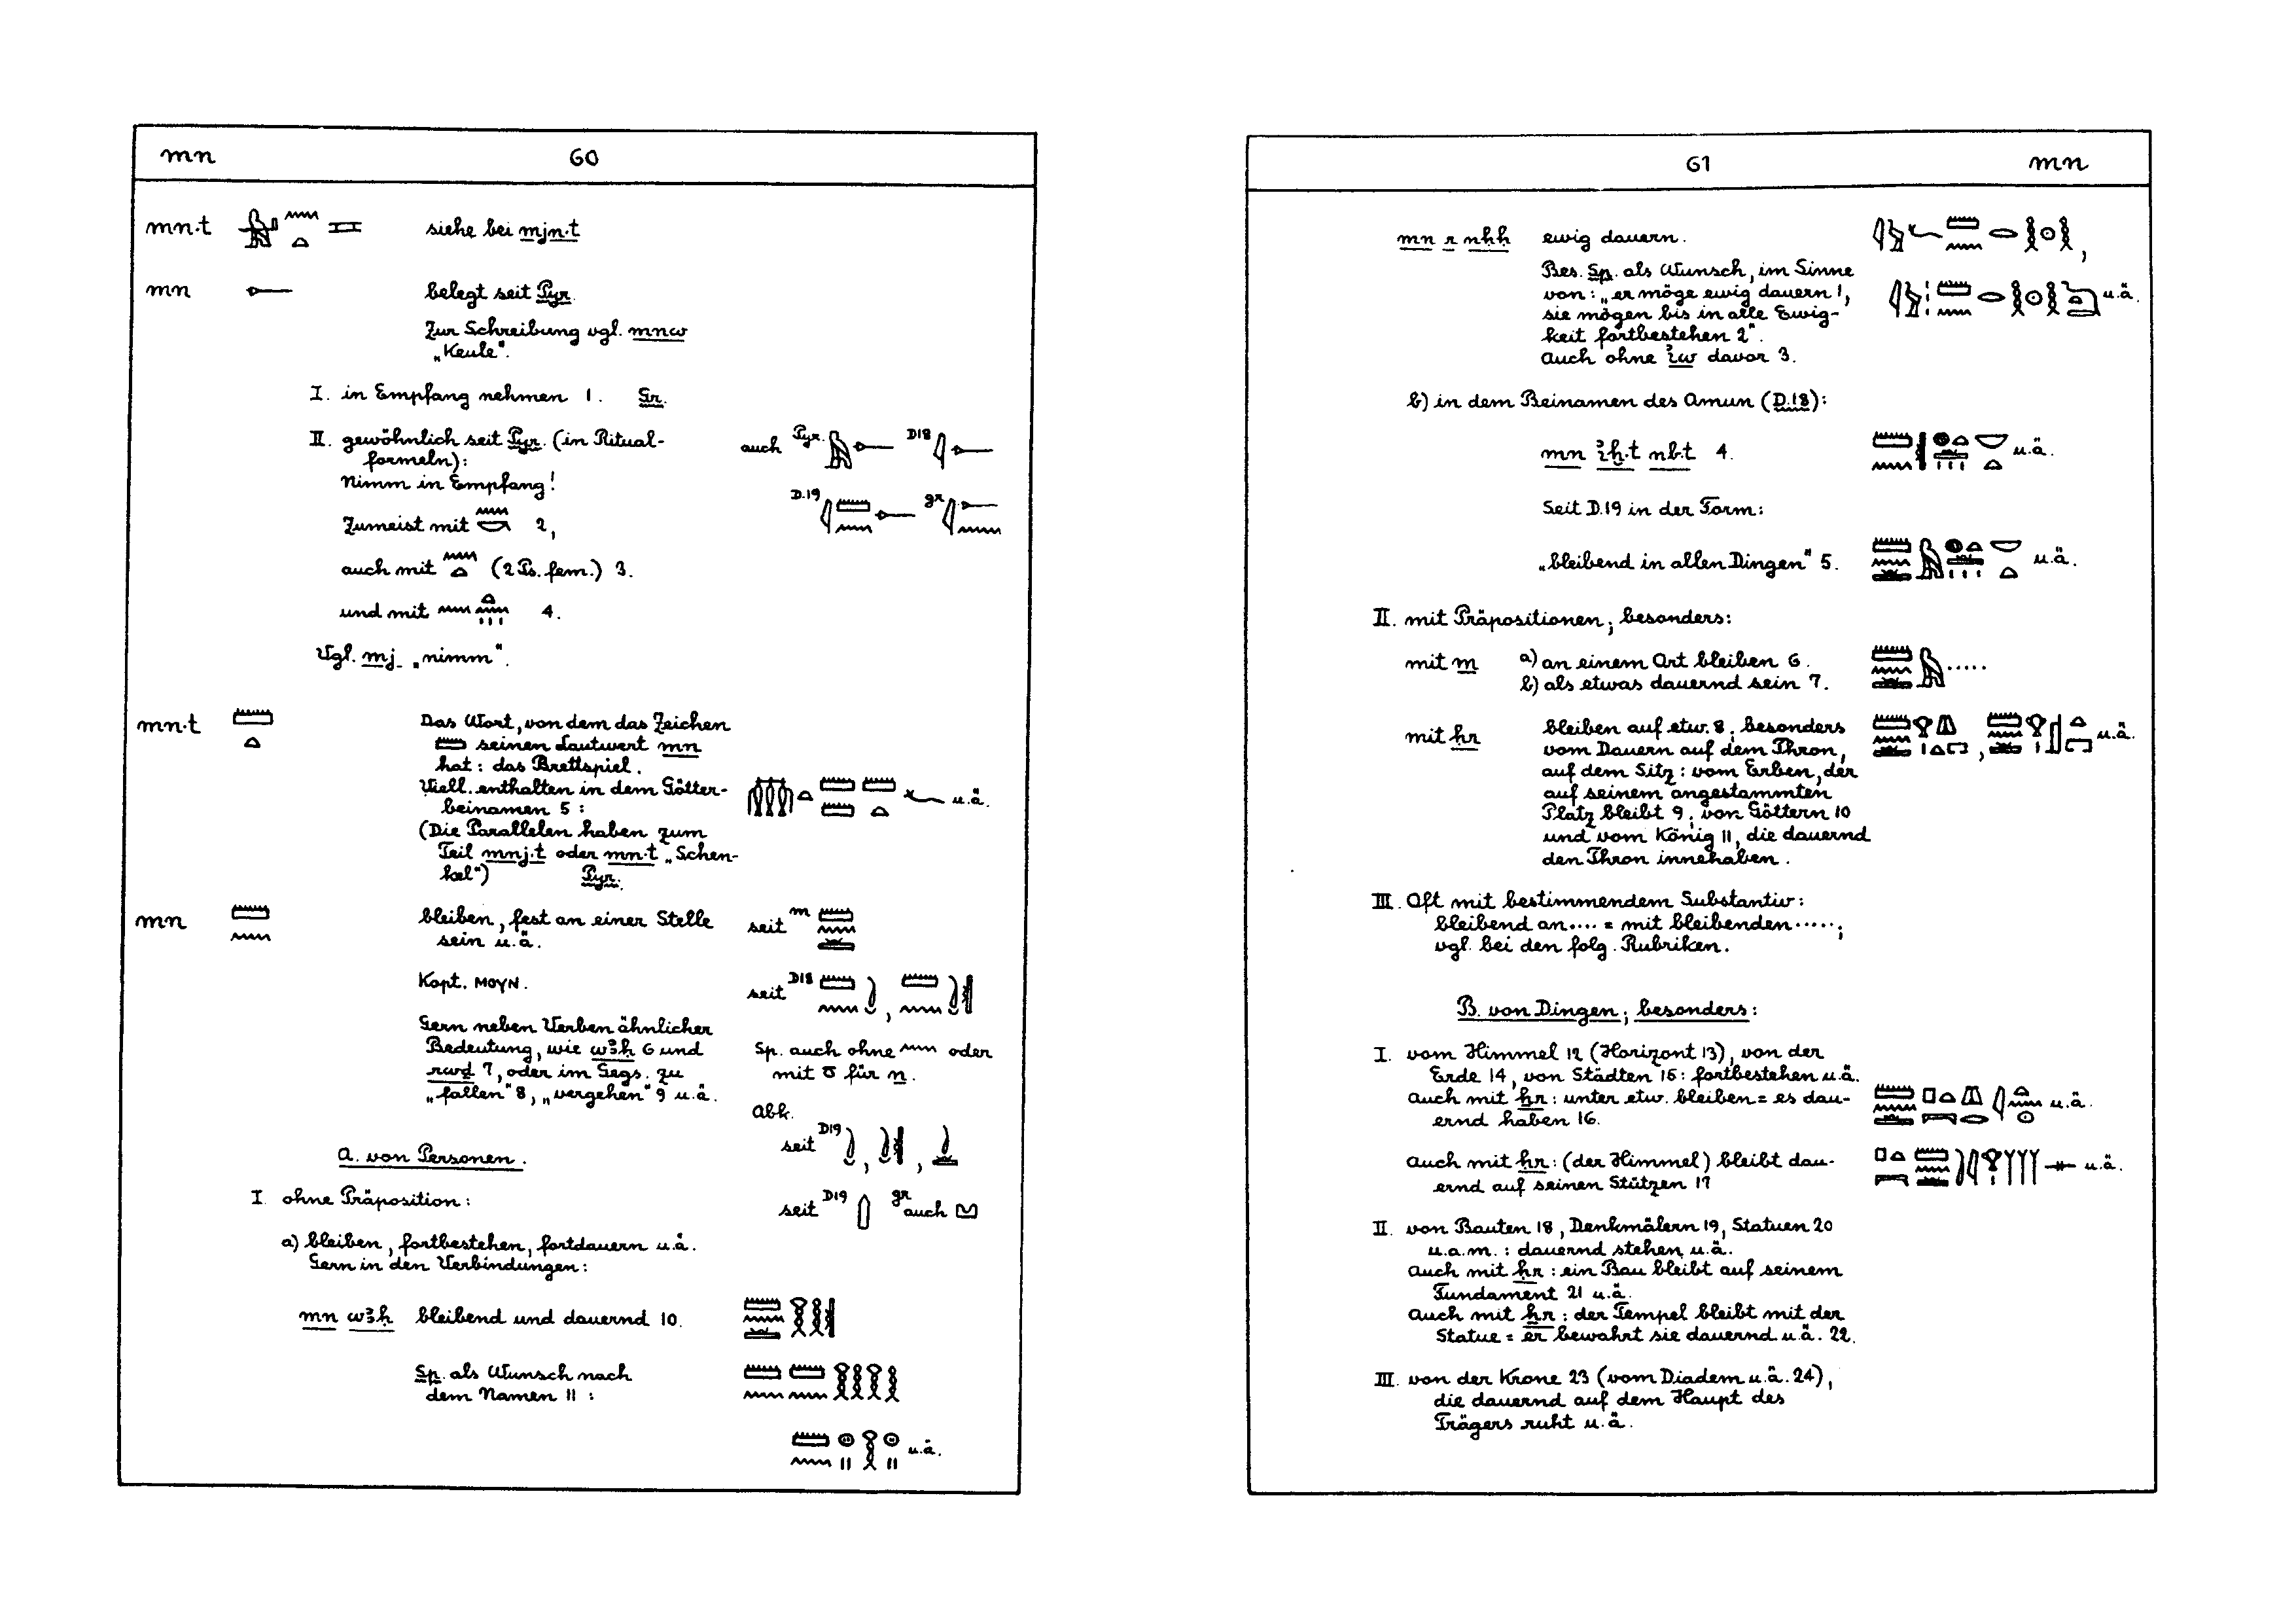 mn 60
mn·t siehe bei mjn·t
mn belegt seit Pyr.
Zur Schreibung vgl. mnw
„Keule".
I. in Empfang nehmen 1. Gr.
II. gewöhnlich seit Pyr. (in Ritual-
formeln):
Nimm in Empfang!
auch Pyr. D18
D.19 gr
Zumeist mit 2,
auch mit (2 Ps. fem.) 3.
und mit 4.
Vgl. mj „nimm".
mn·t Das Wort, von dem das Zeichen
seinen Lautwert mn
hat: das Brettspiel.
Viell. enthalten in dem Götter-
beinamen 5: u.ä.
(Die Parallelen haben zum
Teil mnj.t oder mn·t „Schen-
kel") Pyr.
mn bleiben, fest an einer Stelle
sein u.ä.
seit m
Kopt. ⲙⲟⲩⲛ.
seit D18 ,
Gern neben Verben ähnlicher
Bedeutung, wie wꜣḥ 6 und
rwḏ 7, oder im Gegs. zu
„fallen" 8, „vergehen" 9 u.ä.
Sp. auch ohne oder
mit für n.
Abk.
seit D19 , ,
seit D19 gr auch
A. von Personen.
I. ohne Präposition:
a) bleiben, fortbestehen, fortdauern u.ä.
Gern in den Verbindungen:
mn wꜣḥ bleibend und dauernd 10.
Sp. als Wunsch nach
dem Namen 11:
u.ä.
61 mn
mn r nḥḥ ewig dauern. ,
Bes. Sp. als Wunsch, im Sinne
von: „er möge ewig dauern 1, u.ä.
sie mögen bis in alle Ewig-
keit fortbestehen 2".
Auch ohne ꞽw davor 3.
b) in dem Beinamen des Amun (D.18):
mn ꞽḫ·t nb·t 4. u.ä.
Seit D.19 in der Form:
„bleibend in allen Dingen" 5. u.ä.
II. mit Präpositionen; besonders:
mit m a) an einem Ort bleiben 6. .....
b) als etwas dauernd sein 7.
mit ḥr bleiben auf etw. 8; besonders
vom Dauern auf dem Thron, , u.ä.
auf dem Sitz: vom Erben, der
auf seinem angestammten
Platz bleibt 9; von Göttern 10
und vom König 11, die dauernd
den Thron innehaben.
III. Oft mit bestimmendem Substantiv:
bleibend an.... = mit bleibenden.....;
vgl. bei den folg. Rubriken.
B. von Dingen; besonders:
I. vom Himmel 12 (Horizont 13), von der
Erde 14, von Städten 15: fortbestehen u.ä.
Auch mit ẖr: unter etw. bleiben = es dau- u.ä.
ernd haben 16.
Auch mit ḥr: (der Himmel) bleibt dau- u.ä.
ernd auf seinen Stützen 17
II. von Bauten 18, Denkmälern 19, Statuen 20
u.a.m.: dauernd stehen u.ä.
Auch mit ḥr: ein Bau bleibt auf seinem
Fundament 21 u.ä.
Auch mit ẖr: der Tempel bleibt mit der
Statue = er bewahrt sie dauernd u.ä. 22.
III. von der Krone 23 (vom Diadem u.ä. 24),
die dauernd auf dem Haupt des
Trägers ruht u.ä.